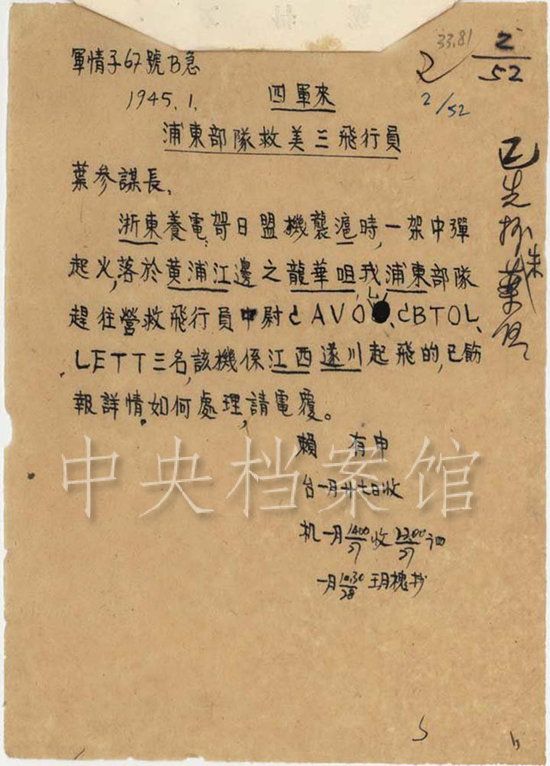 33.81
2
2/52
2/52
軍情子67號B急
1945.1.
四軍來
浦東部隊救美三飛行員
葉參謀長、
浙東養電哿日盟機襲滬時,一架中彈
起火,落於黄浦江邊之龍華咀,我浦東部隊
L
趕往營救飛行員中尉 CAVO、CBTOL、
LETT三名,該機係江西遂川起飛的,已飭
報詳情,如何處理,請電覆。
賴 有申
台一月廿七日收
机一月1400/27收2200/27
一月1030/28 抄
已先抄
中央档案馆